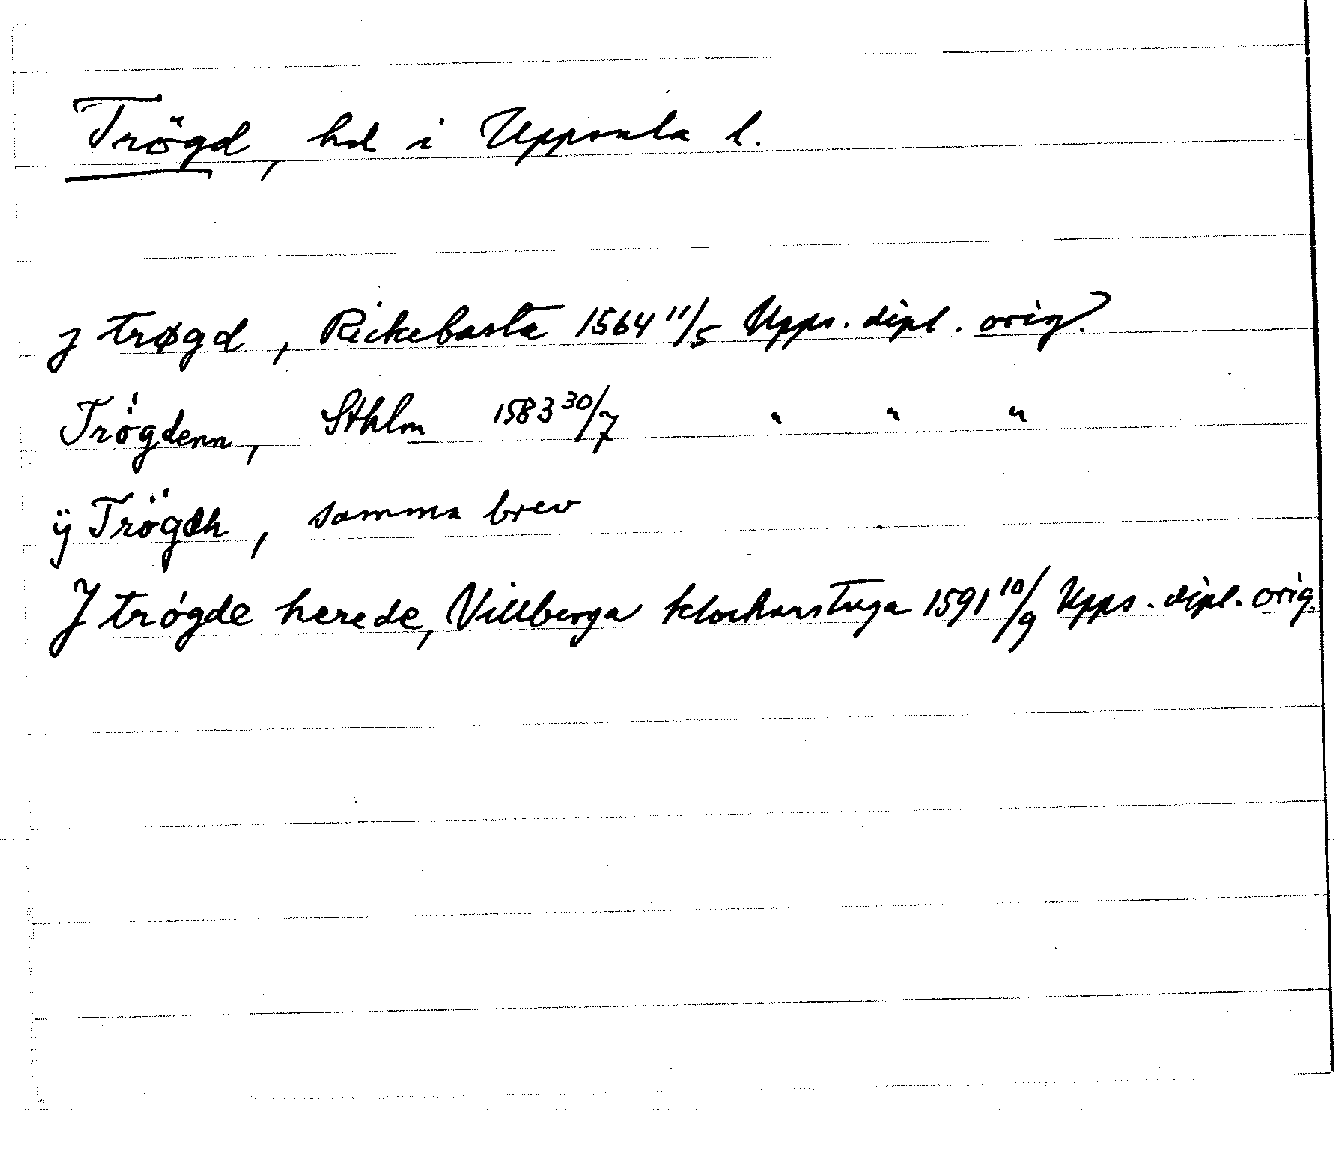 Trögd, hd i Uppsala l.
j trøgd, Rickebasta 1564 11/5 Upps. dipl. orig.
Trögdenn, Sthlm 1583 30/7 " " "
ÿ Trögdh, samma brev
J trógde herede, Villberga klockarstuga 1591 10/9 Upps. dipl. orig.